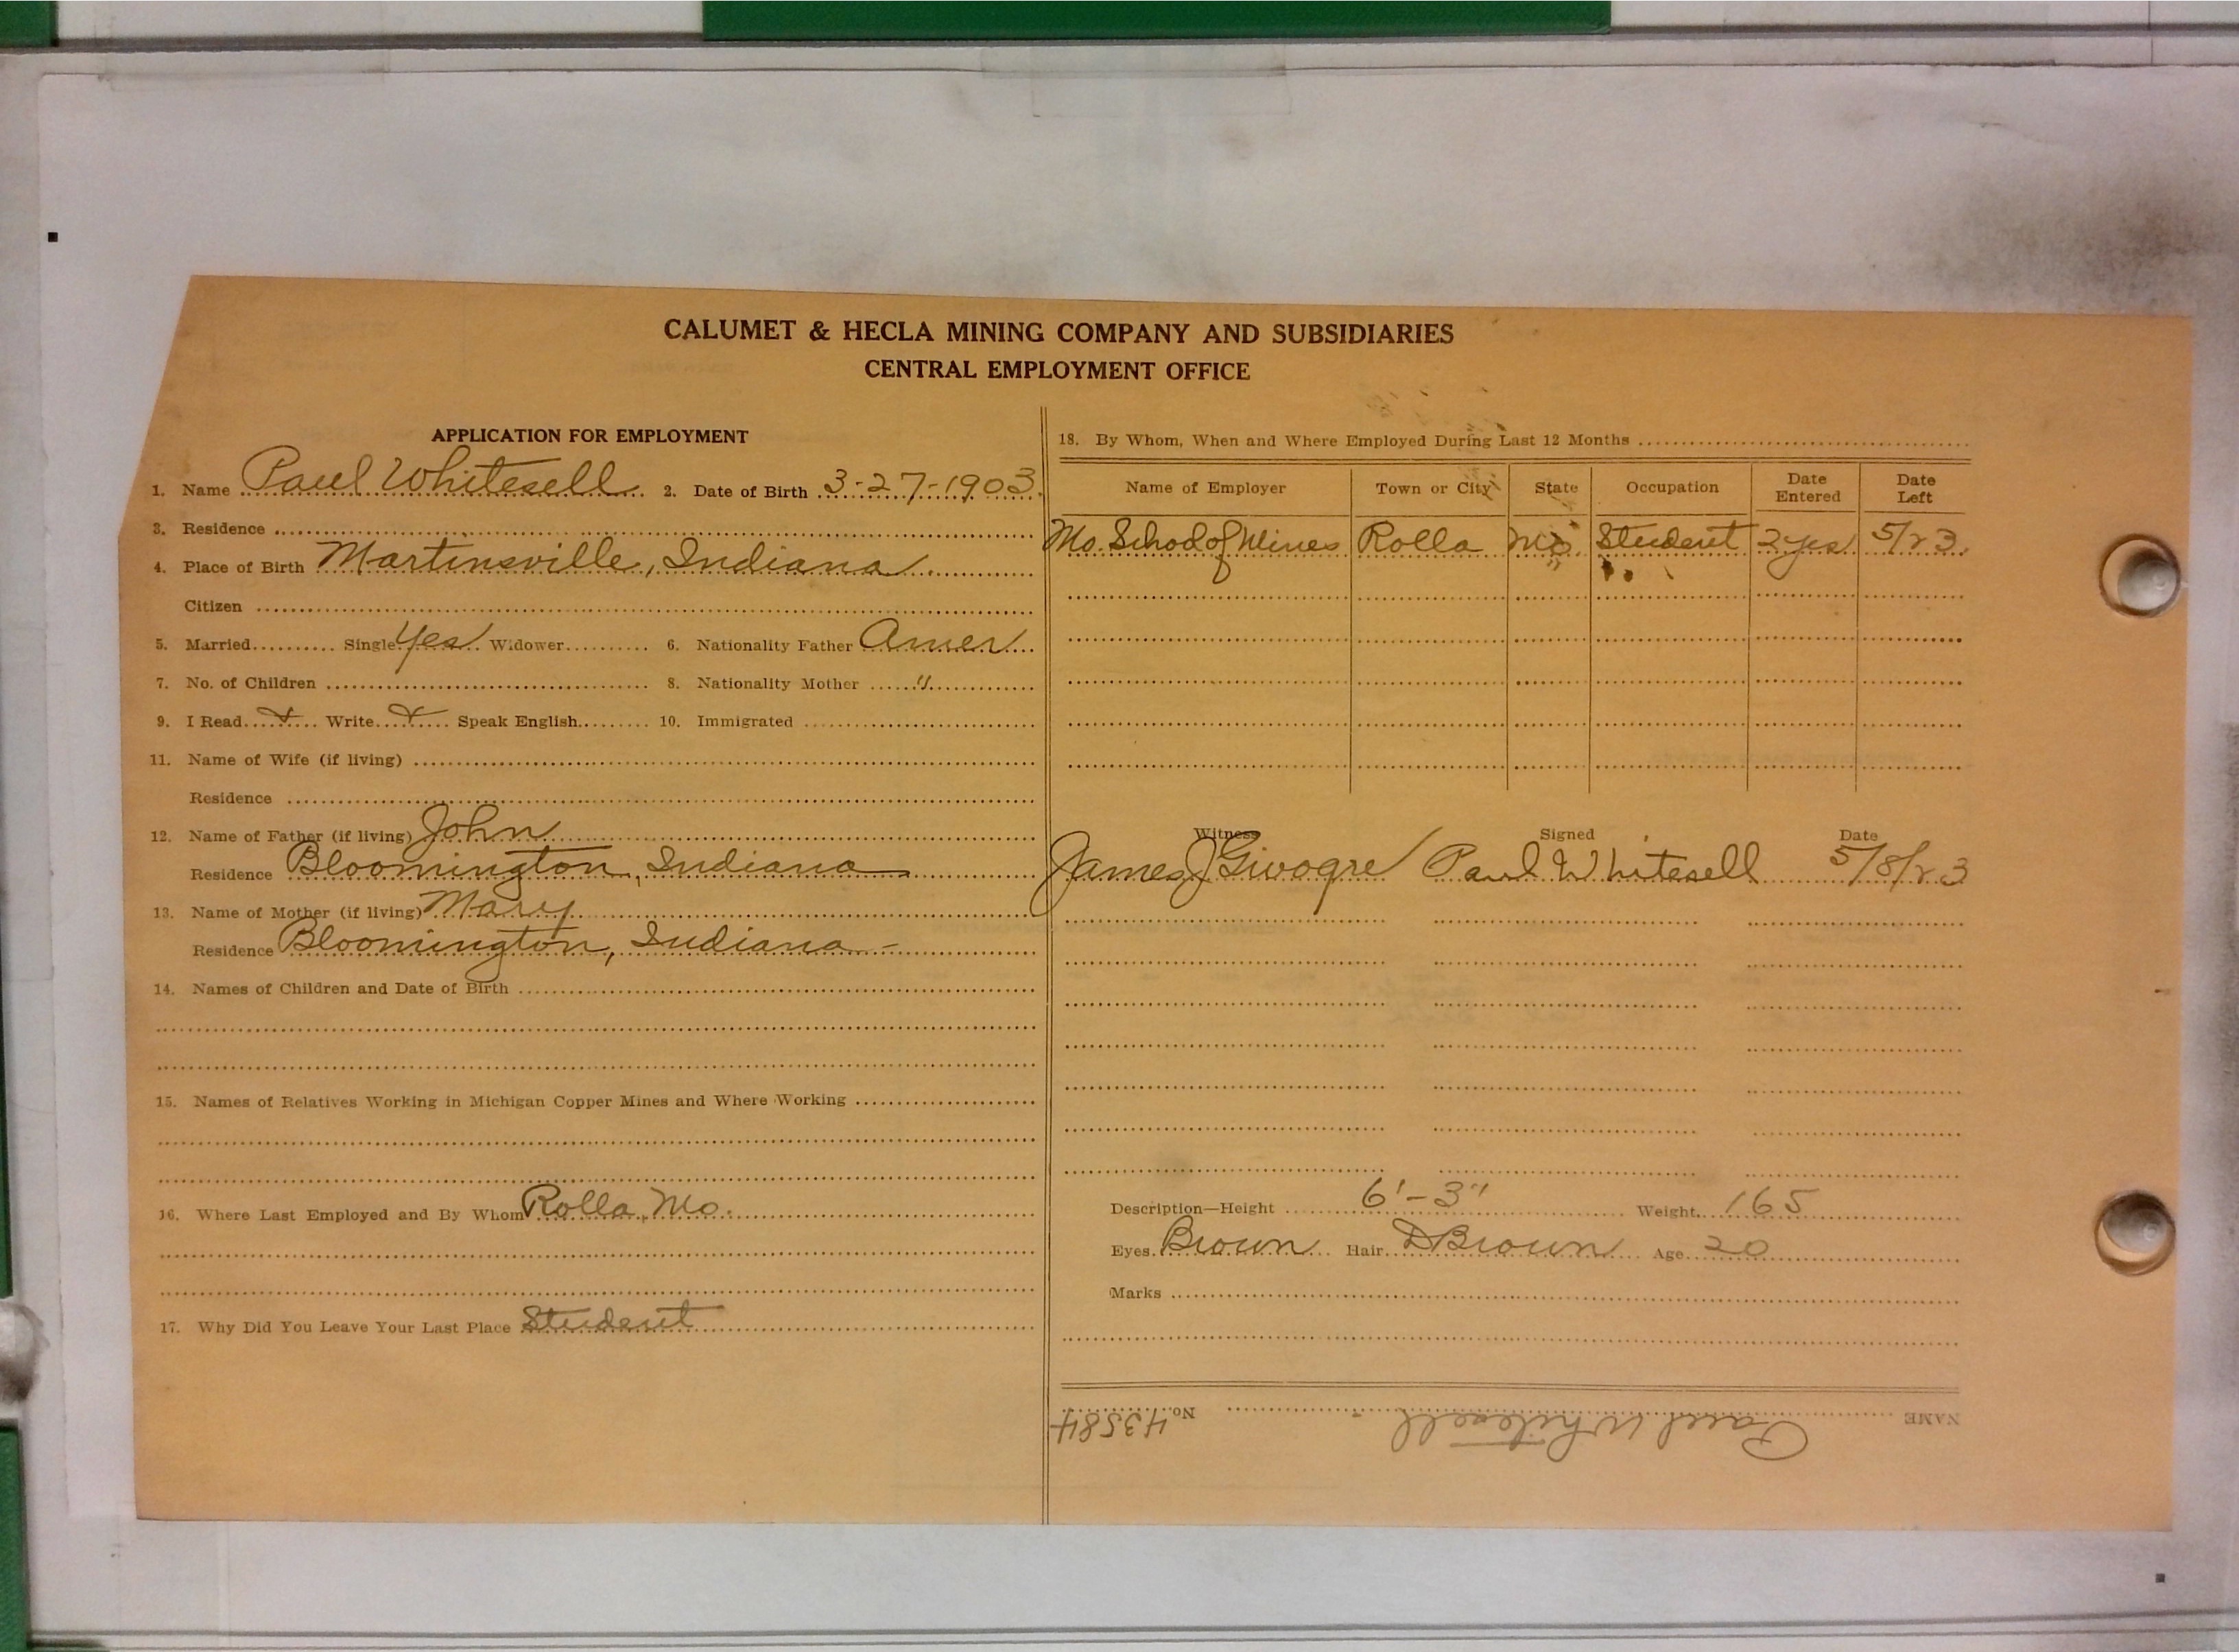 CALUMET & HECLA MINING COMPANY AND SUBSIDIARIES
CENTRAL EMPLOYMENT OFFICE
APPLICATION FOR EMPLOYMENT
1. Name Paul Whitesell 2. Date of Birth 3-27-1903
3. Residence
4. Place of Birth Martinsville, Indiana
Citizen
5. Married Single Yes Widower 6. Nationality Father Amer
7. No. of Children 8. Nationality Mother "
9. I Read X Write X Speak English 10. Immigrated
11. Name of Wife (if living)
Residence
12. Name of Father (if living) John
Residence Bloomington, Indiana
13. Name of Mother (if living) Mary
Residence Bloomington, Indiana -
14. Names of Children and Date of Birth
15. Names of Relatives Working in Michigan Copper Mines and Where Working
16. Where Last Employed and By Whom Rolla, Mo.
17. Why Did You Leave Your Last Place Student
18. By Whom, When and Where Employed During Last 12 Months
Name of Employer Town or City State Occupation Date Entered Date Left
Mo. School of Mines Rolla Mo. Student 2 yes 5/23
Witness Signed Date
James J Paul Whitesell 5/8/23
Description—Height 6'-3" Weight 165
Eyes Brown Hair D Brown Age 20
Marks
NAME Paul Whitesell No. 43584